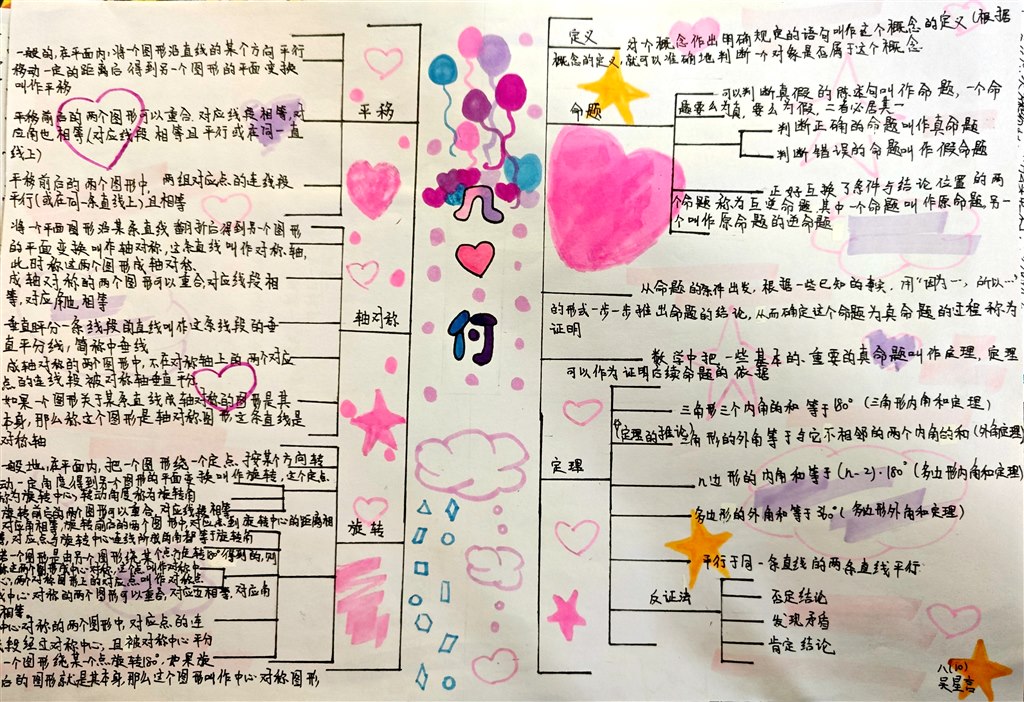 一般的,在平面内,将一个图形沿直线的某个方向平行
移动一定的距离后得到另一个图形的平面变换
叫作平移
平移
平移前后的两个图形可以重合,对应线段相等,对
应角也相等(对应线段相等且平行或在同一直
线上)
平移前后的两个图形中,两组对应点的连线段
平行(或在同一条直线上),且相等
将一个平面图形沿某条直线翻折后得到另一个图形
的平面变换叫作轴对称,这条直线叫作对称轴,
此时称这两个图形成轴对称.
成轴对称的两个图形可以重合,对应线段相
等,对应角也相等
轴对称
垂直平分一条线段的直线叫作这条线段的垂
直平分线,简称中垂线
成轴对称的两个图形中,不在对称轴上的两个对应
点的连线段被对称轴垂直平分
如果一个图形关于某条直线成轴对称的图形是其
本身,那么称这个图形是轴对称图形这条直线是
对称轴
一般地,在平面内,把一个图形绕一个定点,按某个方向转
动一定角度得到另一个图形的平面变换叫作旋转,这个定点
称为旋转中心,转动角度称为旋转角
旋转前后的两个图形可以重合,对应线段相等
对应角相等,旋转前后的两个图形中,对应点到旋转中心的距离相
等,对应点与旋转中心连线所成的角都等于旋转角
旋转
一个图形是由另一个图形绕某个点旋转180°得到的,则
称这两个图形成中心对称,这个点叫作对称中
心,两个对称图形上的对应点叫作对称点
成中心对称的两个图形可以重合,对应边相等,对应角
相等.
中心对称的两个图形中,对应点的连
线段经过对称中心,且被对称中心平分
一个图形绕某个点旋转180°,如果旋
后的图形就是其本身,那么这个图形叫作中心对称图形,
几
何
定义
对个概念作出明确规定的语句叫作这个概念的定义(根据
概念的定义,就可以准确地判断一个对象是否属于这个概念
命题
可以判断真假的陈述句叫作命题,一个命
题要么为真,要么为假,二者必居其一
判断正确的命题叫作真命题
判断错误的命题叫作假命题
正好互换了条件与结论位置的两
个命题称为互逆命题,其中一个命题叫作原命题,另一
个叫作原命题的逆命题
从命题的条件出发,根据一些已知的事实,用“因为…,所以…”
的形式一步一步推出命题的结论,从而确定这个命题为真命题的过程称为
证明
数学中把一些基本的、重要的真命题叫作定理,定理
可以作为证明后续命题的依据
定理
三角形三个内角的和等于180°(三角形内角和定理)
(定理的推论)三角形的外角等于与它不相邻的两个内角的和(外角定理)
n边形的内角和等于(n-2)·180°(多边形内角和定理)
多边形的外角和等于360°(多边形外角和定理)
平行于同一条直线的两条直线平行
反证法
否定结论
发现矛盾
肯定结论
八(10)
吴星言